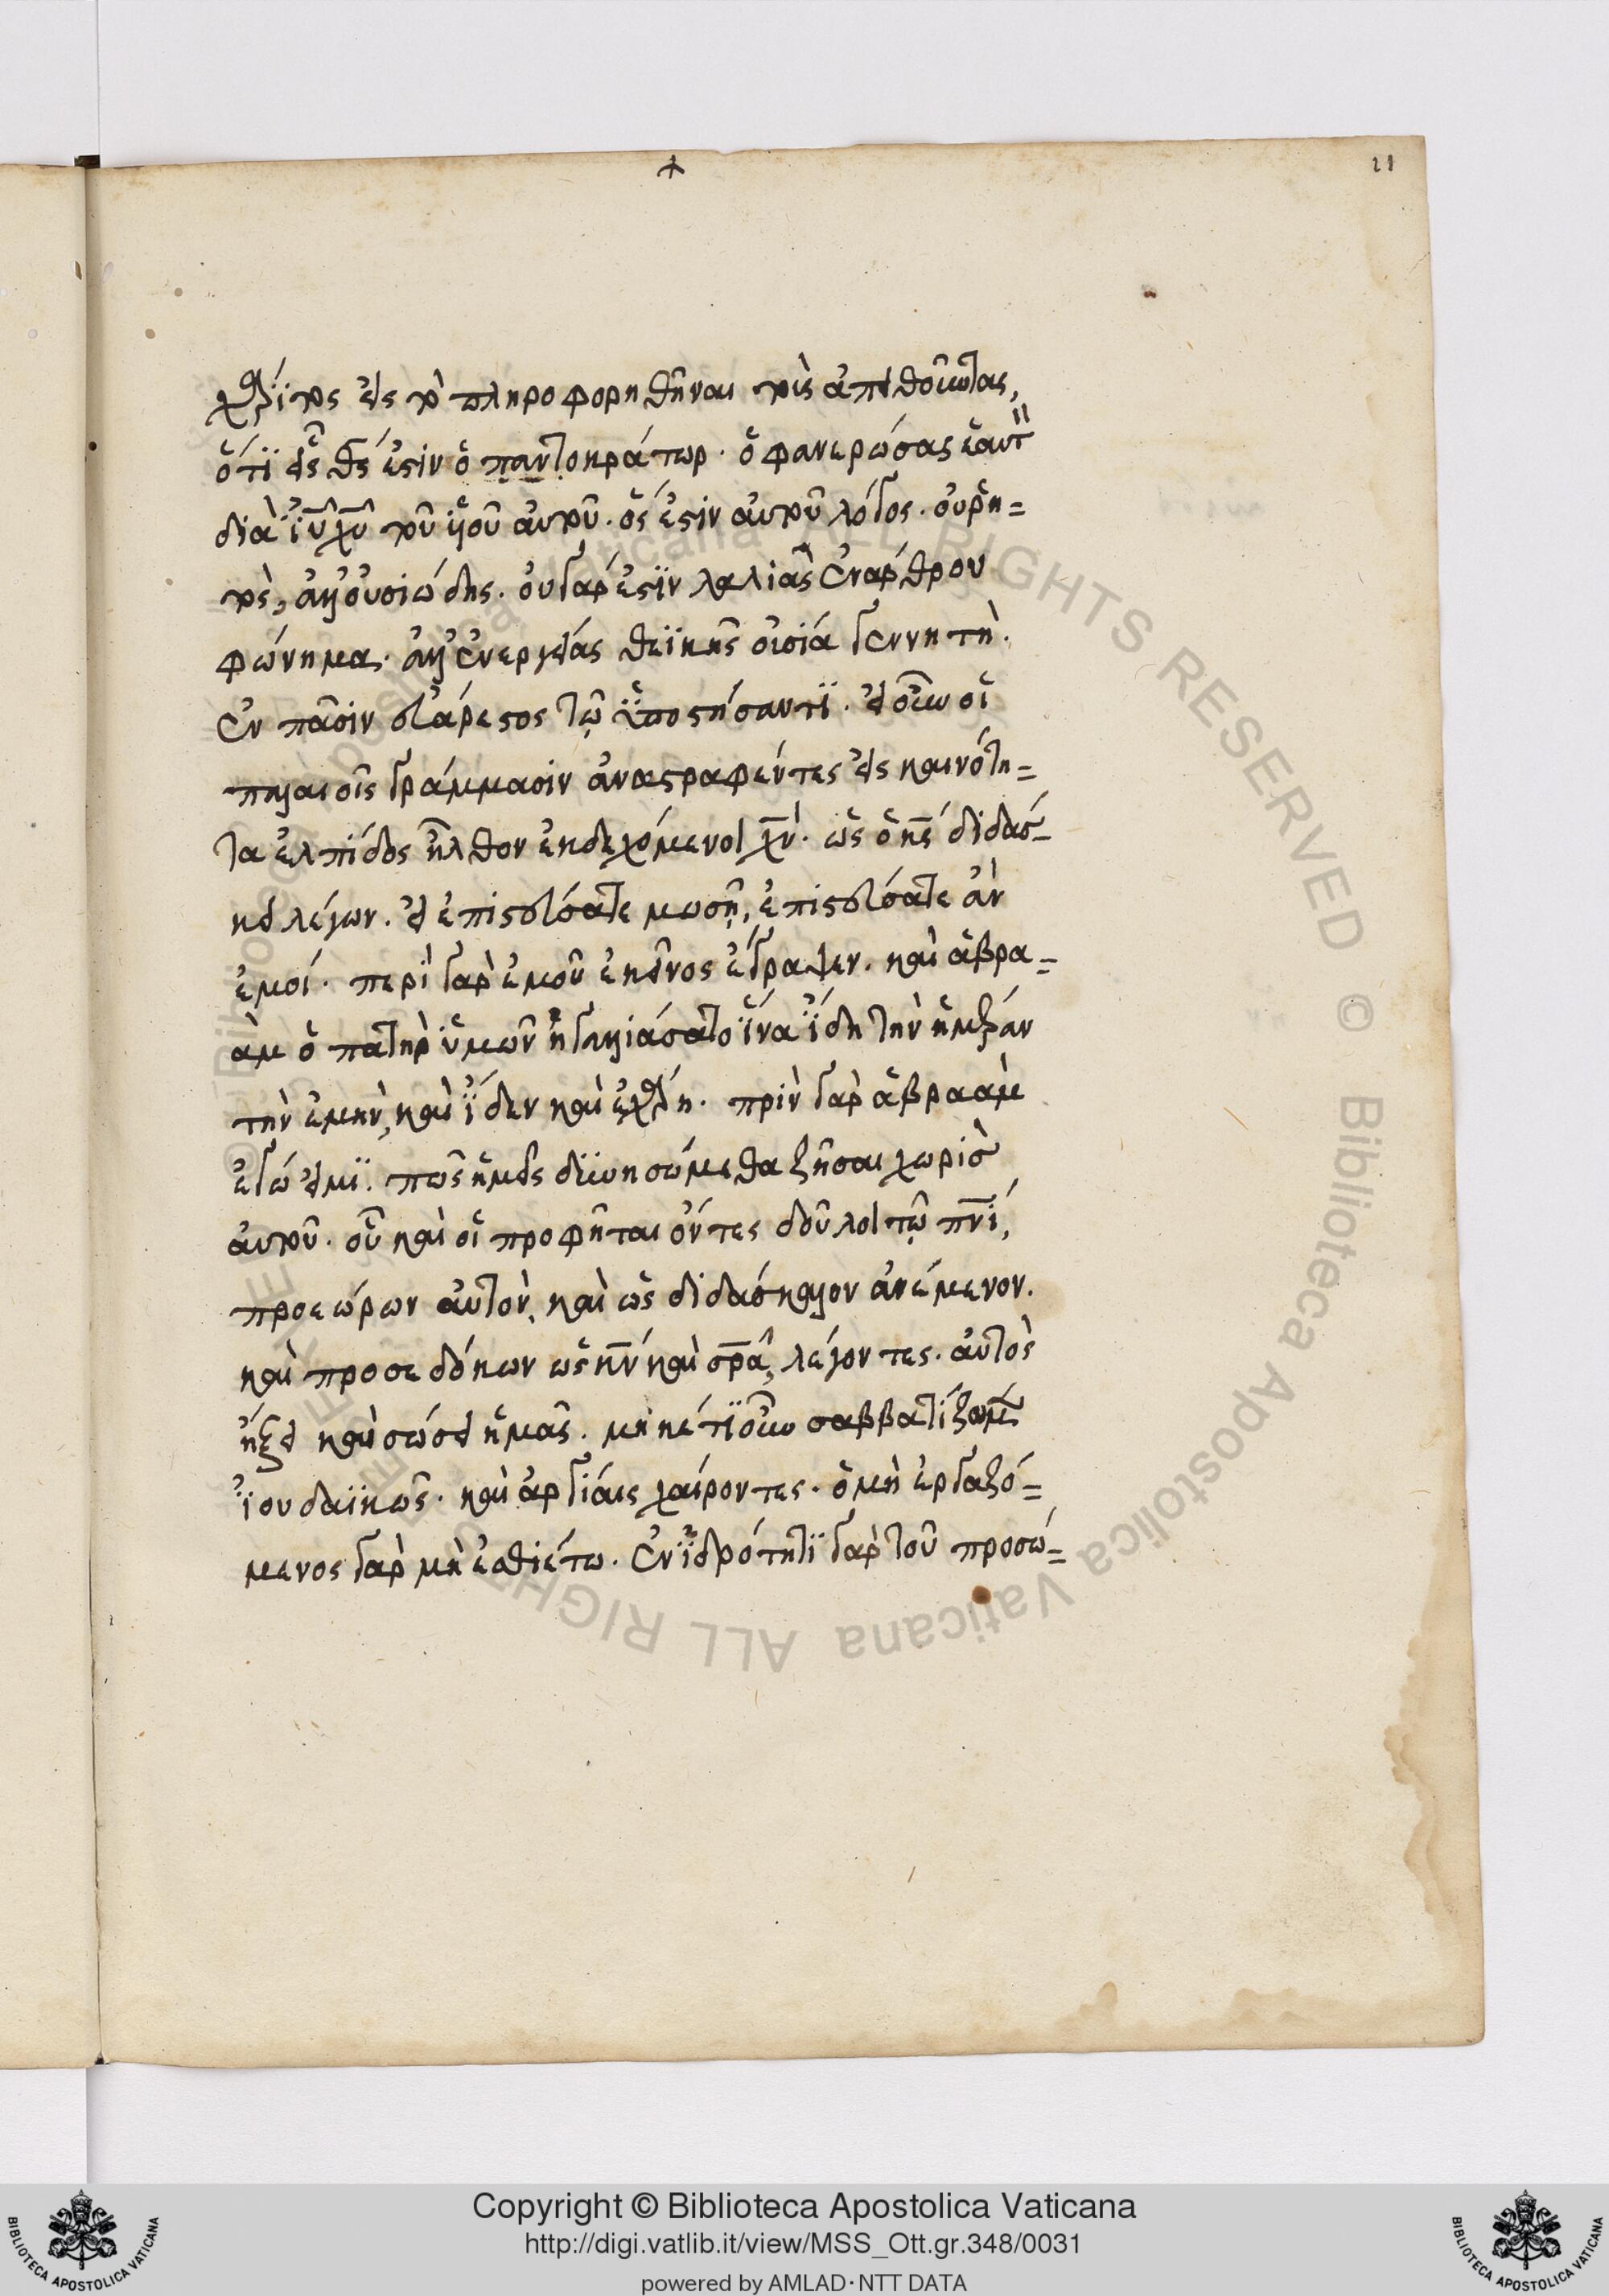 11
χάριτος εἰς τὸ πληροφορηθῆναι τοὺς ἀπειθοῦντας,
ὅτι εἷς θς ἐστιν ὁ παντοκράτωρ. ὁ φανερώσας ἑαυτὸν
διὰ ἰυ χυ τοῦ υἱοῦ αὐτοῦ. ὅς ἐστιν αὐτοῦ λόγος. οὐ ῥη=
τὸς, ἀλλ' οὐσιώδης. οὐ γάρ ἐστιν λαλιᾶς ἐνάρθρου
φώνημα. ἀλλ' ἐνεργείας θεϊκῆς οὐσία γεννητὴ.
ἐν πᾶσιν εὐάρεστος τῷ ὑποστήσαντι. εἰ οὖν οἱ
παλαιοῖς γράμμασιν ἀναστραφέντες εἰς καινότη=
τα ἐλπίδος ἦλθον ἐκδεχόμενοι χν. ὡς ὁ κς διδάσ-
κει λέγων. εἰ ἐπιστεύσατε μωσῇ, ἐπιστεύσατε ἂν
ἐμοί. περὶ γὰρ ἐμοῦ ἐκεῖνος ἔγραψεν. καὶ ἁβρα=
ὰμ ὁ πατὴρ ὑμῶν ἠγαλλιάσατο ἵνα ἴδη τὴν ἡμέραν
τὴν ἐμὴν, καὶ ἴδεν καὶ ἐχάρη. πρὶν γὰρ ἁβραὰμ
ἐγώ εἰμι. πῶς ἡμεῖς δϊυνησώμεθα ζῆσαι χωρὶς
αὐτοῦ. οὗ καὶ οἱ προφῆται ὄντες δοῦλοι τῷ πνί,
προεώρων αὐτὸν, καὶ ὡς διδάσκαλον ἀνέμενον.
καὶ προσεδόκων ὡς κν καὶ σρα, λέγοντες. αὐτὸς
ἥξει καὶ σώσει ἡμᾶς. μηκέτι οὖν σαββατίζωμεν
ἰουδαϊκῶς. καὶ ἀργίαις χαίροντες. ὁ μὴ ἐργαζό=
μενος γὰρ μὴ ἐσθιέτω. ἐν ἱδρότητι γὰρ τοῦ προσώ=
Copyright © Biblioteca Apostolica Vaticana
http://digi.vatlib.it/view/MSS_Ott.gr.348/0031
powered by AMLAD·NTT DATA
BIBLIOTECA APOSTOLICA VATICANA
BIBLIOTECA APOSTOLICA VATICANA
© Biblioteca Apostolica Vaticana ALL RIGHTS RESERVED © Biblioteca Apostolica Vaticana ALL RIGHTS RESERVED